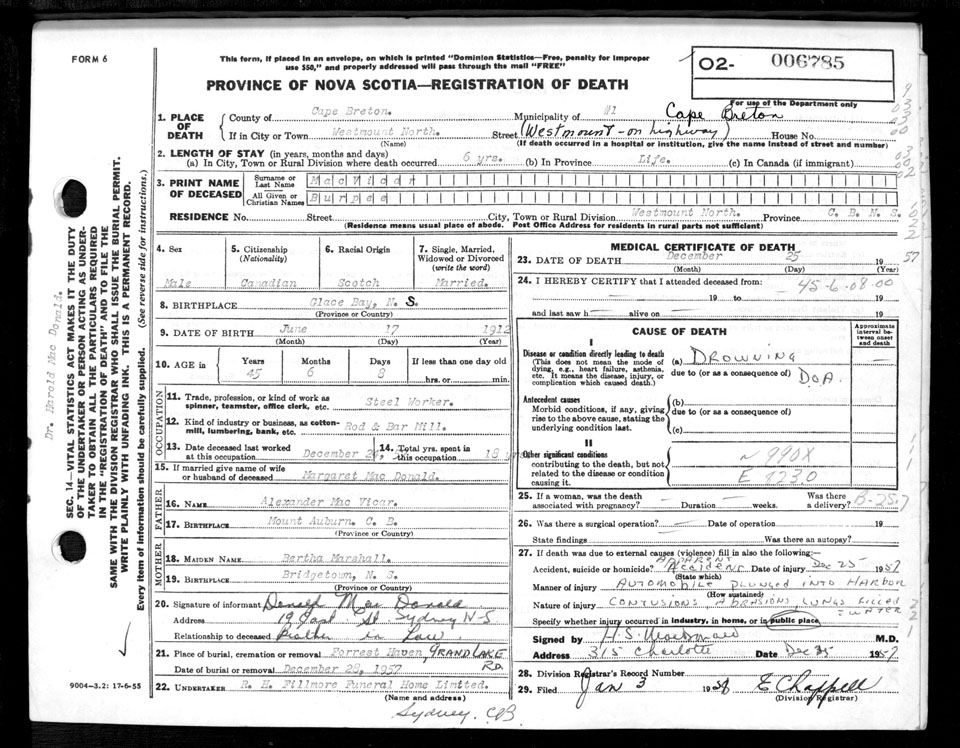 FORM 6
This form, if placed in an envelope, on which is printed "Dominion Statistics—Free, penalty for improper
use $50," and properly addressed will pass through the mail "FREE"
O2- 006785
PROVINCE OF NOVA SCOTIA—REGISTRATION OF DEATH
For use of the Department only
1. PLACE OF DEATH
County of Cape Breton. Municipality of #1 Cape Breton
If in City or Town Westmount North. Street (Westmount-on highway) House No.
(Name) (If death occurred in a hospital or institution, give the name instead of street and number)
2. LENGTH OF STAY (in years, months and days)
(a) In City, Town or Rural Division where death occurred 6 yrs. (b) In Province Life. (c) In Canada (if immigrant)
3. PRINT NAME OF DECEASED
Surname or Last Name MacVicar
All Given or Christian Names
RESIDENCE No. Street City, Town or Rural Division Westmount North. Province C. B. N. S.
(Residence means usual place of abode. Post Office Address for residents in rural parts not sufficient)
4. Sex
Male
5. Citizenship
(Nationality)
Canadian
6. Racial Origin
Scotch
7. Single, Married,
Widowed or Divorced
(write the word)
Married.
8. BIRTHPLACE Glace Bay, N. S.
(Province or Country)
9. DATE OF BIRTH June 17 1912
(Month) (Day) (Year)
10. AGE in Years Months Days If less than one day old
45 6 8 hrs. or min.
OCCUPATION
11. Trade, profession, or kind of work as
spinner, teamster, office clerk, etc. Steel Worker.
12. Kind of industry or business, as cotton-
mill, lumbering, bank, etc. Rod & Bar Mill.
13. Date deceased last worked
at this occupation December 24,
14. Total yrs. spent in
this occupation 18 yrs
15. If married give name of wife
or husband of deceased Margaret Mac Donald.
FATHER
16. NAME Alexander Mac Vicar.
17. BIRTHPLACE Mount Auburn. C. B.
(Province or Country)
MOTHER
18. MAIDEN NAME Bertha Marshall.
19. BIRTHPLACE Bridgetown, N. S.
(Province or Country)
20. Signature of informant Donald Mac Donald
Address St Sydney N-S
Relationship to deceased Brother in Law
21. Place of burial, cremation or removal Forrest Haven, GRAND LAKE RD.
Date of burial or removal December 28, 1957
22. UNDERTAKER R. H. Fillmore Funeral Home Limited.
(Name and address)
Sydney. CB
MEDICAL CERTIFICATE OF DEATH
23. DATE OF DEATH December 25 1957
(Month) (Day) (Year)
24. I HEREBY CERTIFY that I attended deceased from:
45-6-08.00
19 to 19
and last saw h alive on 19
CAUSE OF DEATH
Approximate interval between onset and death
I
Disease or condition directly leading to death
(This does not mean the mode of
dying, e.g., heart failure, asthenia,
etc. It means the disease, injury, or
complication which caused death.)
(a) DROWNING
due to (or as a consequence of) D.O.A.
Antecedent causes
Morbid conditions, if any, giving
rise to the above cause, stating the
underlying condition last.
(b)
due to (or as a consequence of)
(c)
II
Other significant conditions
contributing to the death, but not
related to the disease or condition
causing it.
N 990X
E 9230
25. If a woman, was the death
associated with pregnancy? Duration weeks. Was there
a delivery? B-25-7
26. Was there a surgical operation? Date of operation 19
State findings Was there an autopsy?
27. If death was due to external causes (violence) fill in also the following:
Accident, suicide or homicide? APPARENT ACCIDENT Date of injury Dec 25 1957
(State which)
Manner of injury AUTOMOBILE PLUNGED INTO HARBOR
(How sustained)
Nature of injury CONTUSIONS ABRASIONS, LUNGS FILLED
WATER
Specify whether injury occurred in industry, in home, or in public place
Signed by M.D.
Address 315 Charlotte Date Dec 25 1957
28. Division Registrar's Record Number
29. Filed Jan 3 1958 E Chappell
(Division Registrar)
Dr. Harold Mac Donald.
SEC. 14—VITAL STATISTICS ACT MAKES IT THE DUTY
OF THE UNDERTAKER OR PERSON ACTING AS UNDER-
TAKER TO OBTAIN ALL THE PARTICULARS REQUIRED
IN THE "REGISTRATION OF DEATH" AND TO FILE THE
SAME WITH THE DIVISION REGISTRAR WHO SHALL ISSUE THE BURIAL PERMIT.
WRITE PLAINLY WITH UNFADING INK. THIS IS A PERMANENT RECORD.
Every item of information should be carefully supplied. (See reverse side for instructions.)
9004-3.2: 17-6-55